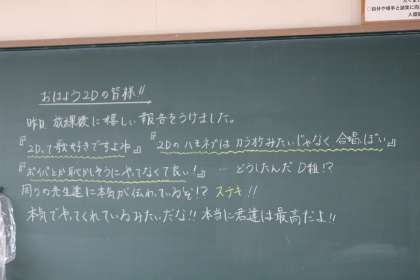 おはよう2Dの皆様!!
昨日、放課後に嬉しい報告をうけました。
『2Dって歌好きですよね』『2Dのハモネプはカラオケみたいじゃなく合唱っぽい』
『ボイパとか恥ずかしそうにやってなくて良い!』…どうしたんだD組!?
周りの先生達に本気が伝わっているぞ!? ステキ!!
本気でやってくれているみたいだな!!本当に君達は最高だよ!!